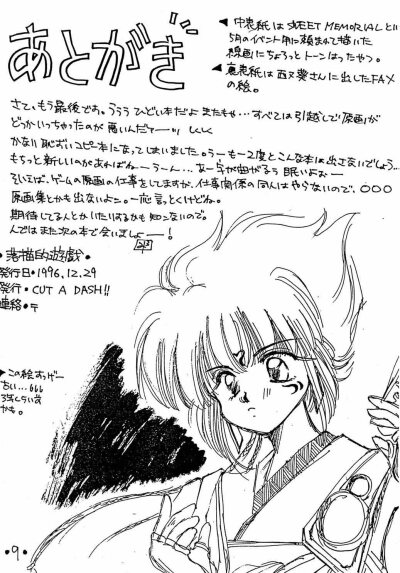 あとがき
◀中表紙は SWEET MEMORIALとい
5月のイベント用に頼まれて描いた
線画にちょろっとトーンはったやつ。
▲裏表紙は西又葵さんに出したFAX
の絵。
さて、もう最後です。ううう ひどい本だよ またもや…すべては引越しで原画が
どっかいっちゃったのが悪いんだぞー!!
かなり恥ずいコピー本になってしまいました。うーもー2度とこんな本は出さないでしょう…
もちっと新しいのがあればねーうーん…あー字が曲がるぅ 眠いよおー
そいえば、ゲームの原画の仕事をしてますが、仕事関係の同人はやらないので、○○○
原画集とかも出ないよん。一応言っとくけどね。
期待してる人とかいたりするかも知んないので。
んではまた次の本で会いましょー!
的遊戯・
発行日・1996.12.29
発行・CUT A DASH!!
連絡・〒
▶この絵すっげー
古い…666
3年くらい前
かも。
・9・